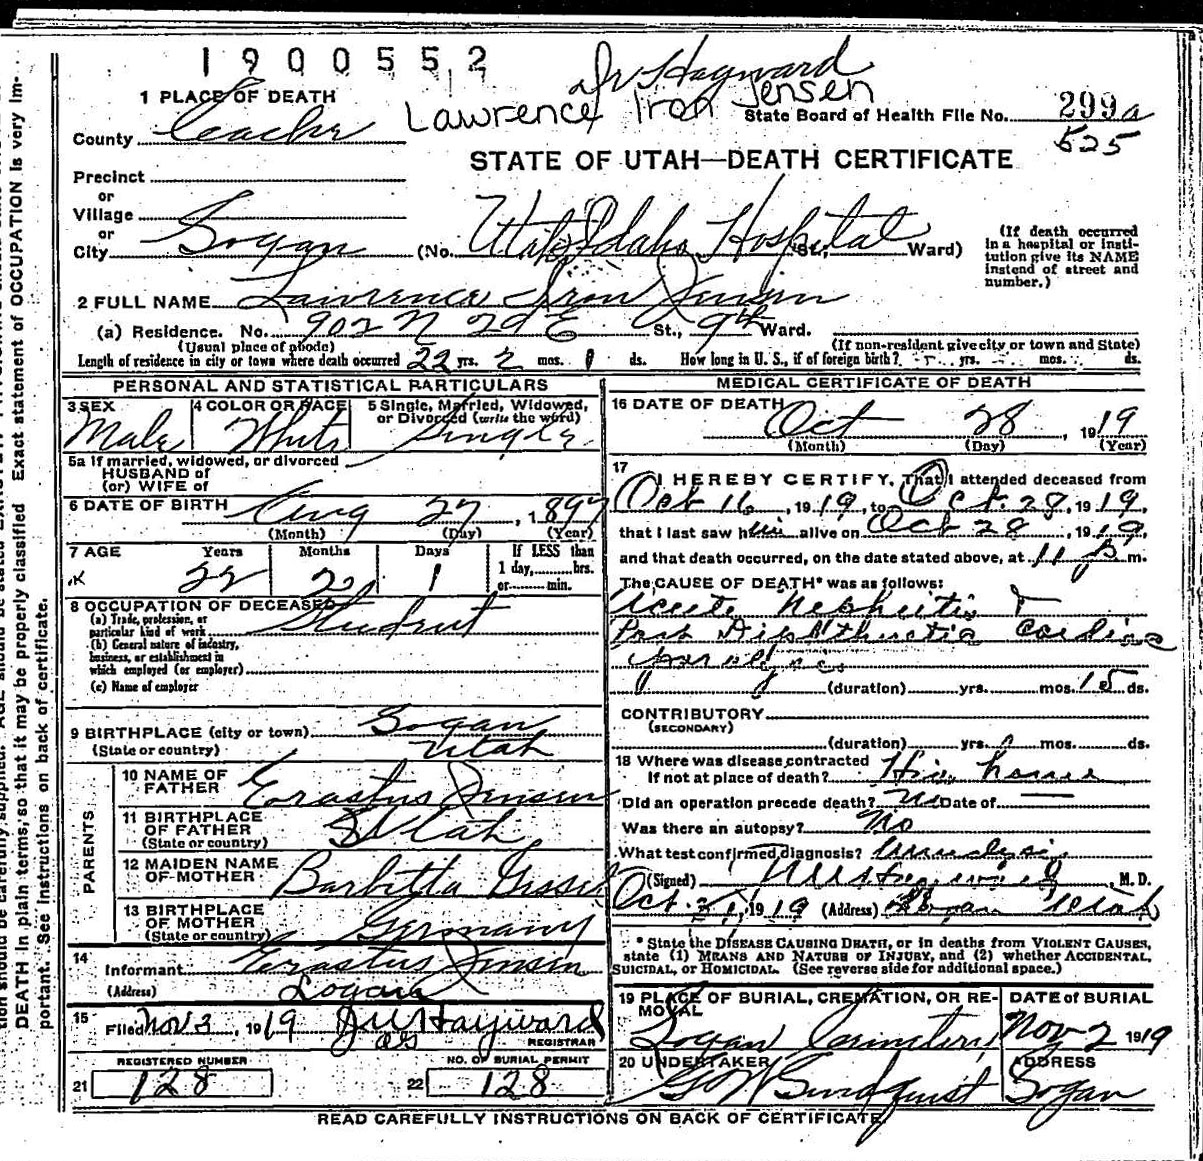 1900552
Dr Hayward
Lawrence Iron Jensen
1 PLACE OF DEATH
County Cache
State Board of Health File No. 299a
525
STATE OF UTAH—DEATH CERTIFICATE
Precinct
or
Village
or
City Logan (No. Utah Idaho Hospital St., Ward)
(If death occurred in a hospital or institution give its NAME instead of street and number.)
2 FULL NAME Lawrence Iron Jensen
(a) Residence. No. 902 N 2d E St., 9th Ward.
(Usual place of abode) (If non-resident give city or town and State)
Length of residence in city or town where death occurred 22 yrs. 2 mos. 1 ds. How long in U. S., if of foreign birth? yrs. mos. ds.
PERSONAL AND STATISTICAL PARTICULARS
3 SEX Male
4 COLOR OR RACE White
5 Single, Married, Widowed, or Divorced (write the word) Single
5a If married, widowed, or divorced
HUSBAND of
(or) WIFE of
6 DATE OF BIRTH Aug 27, 1897
(Month) (Day) (Year)
7 AGE Years Months Days If LESS than
22 2 1 1 day,......hrs.
or......min.
8 OCCUPATION OF DECEASED
(a) Trade, profession, or
particular kind of work Student
(b) General nature of industry,
business, or establishment in
which employed (or employer)
(c) Name of employer
9 BIRTHPLACE (city or town) Logan
(State or country) Utah
PARENTS
10 NAME OF FATHER Erastus Jensen
11 BIRTHPLACE OF FATHER
(State or country) Utah
12 MAIDEN NAME OF MOTHER Barbetta
13 BIRTHPLACE OF MOTHER
(State or country) Germany
14 Informant Erastus Jensen
(Address) Logan
15 Filed Nov 3, 1919 Hayward
REGISTRAR
REGISTERED NUMBER
21 128
NO. OF BURIAL PERMIT
22 128
MEDICAL CERTIFICATE OF DEATH
16 DATE OF DEATH Oct 28, 1919
(Month) (Day) (Year)
17 I HEREBY CERTIFY, That I attended deceased from
Oct 16, 1919, to Oct. 28, 1919,
that I last saw him alive on Oct 28, 1919,
and that death occurred, on the date stated above, at 11 P m.
The CAUSE OF DEATH* was as follows:
Acute Nephritis +
Post Diphtheretic Cardiac
paralysis
(duration) yrs. mos. 15 ds.
CONTRIBUTORY
(SECONDARY)
(duration) yrs. mos. ds.
18 Where was disease contracted
If not at place of death? His home
Did an operation precede death? No Date of —
Was there an autopsy? No
What test confirmed diagnosis? Urinalysis
(Signed) M. D.
Oct. 31, 1919 (Address) Logan Utah
* State the DISEASE CAUSING DEATH, or in deaths from VIOLENT CAUSES,
state (1) MEANS AND NATURE OF INJURY, and (2) whether ACCIDENTAL,
SUICIDAL, or HOMICIDAL. (See reverse side for additional space.)
19 PLACE OF BURIAL, CREMATION, OR REMOVAL DATE of BURIAL
Logan Cemetery Nov 2 1919
20 UNDERTAKER ADDRESS
Logan
READ CAREFULLY INSTRUCTIONS ON BACK OF CERTIFICATE
DEATH in plain terms, so that it may be properly classified. Exact statement of OCCUPATION is very important. See instructions on back of certificate.